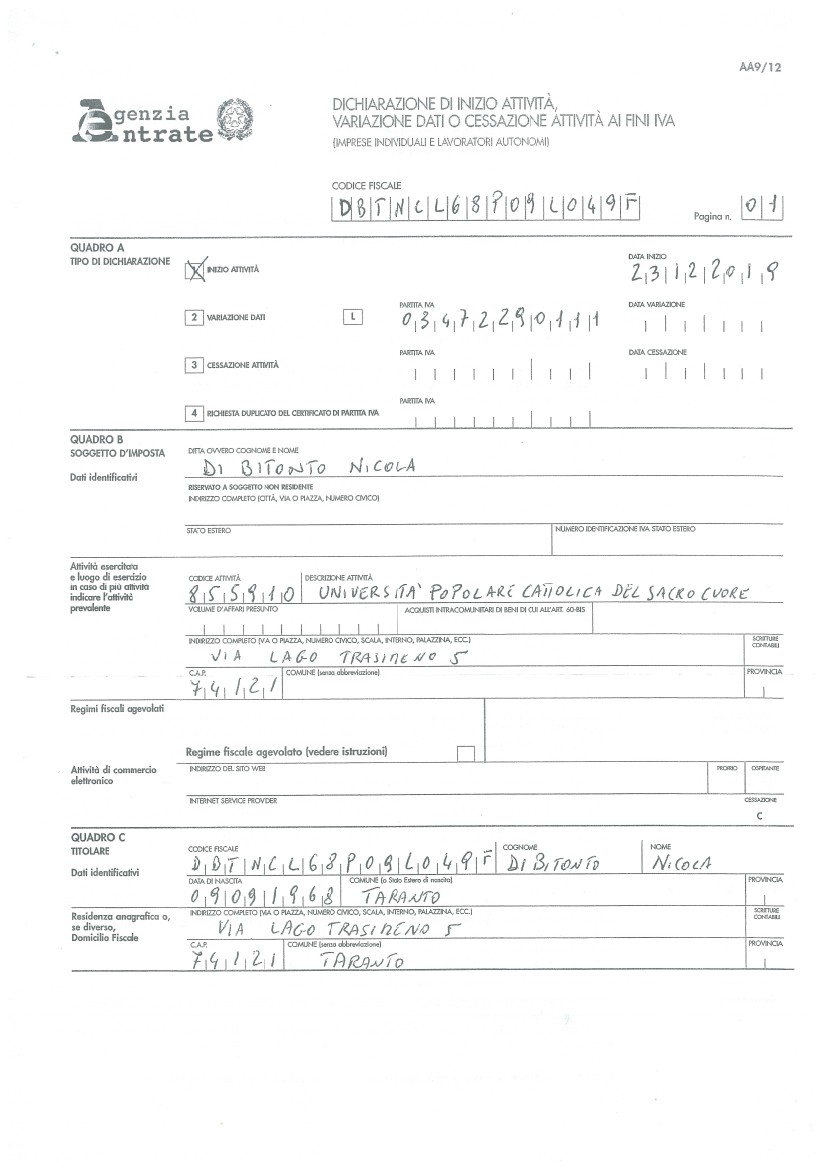 AA9/12
Agenzia Entrate
DICHIARAZIONE DI INIZIO ATTIVITÀ,
VARIAZIONE DATI O CESSAZIONE ATTIVITÀ AI FINI IVA
(IMPRESE INDIVIDUALI E LAVORATORI AUTONOMI)
CODICE FISCALE
DBTNCL68P09L049F Pagina n. 01
QUADRO A
TIPO DI DICHIARAZIONE
INIZIO ATTIVITÀ
DATA INIZIO
23122019
2 VARIAZIONE DATI L
PARTITA IVA
03472290111
DATA VARIAZIONE
3 CESSAZIONE ATTIVITÀ
PARTITA IVA
DATA CESSAZIONE
4 RICHIESTA DUPLICATO DEL CERTIFICATO DI PARTITA IVA
PARTITA IVA
QUADRO B
SOGGETTO D'IMPOSTA
Dati identificativi
DITTA OVVERO COGNOME E NOME
DI BITONTO NICOLA
RISERVATO A SOGGETTO NON RESIDENTE
INDIRIZZO COMPLETO (CITTÀ, VIA O PIAZZA, NUMERO CIVICO)
STATO ESTERO
NUMERO IDENTIFICAZIONE IVA STATO ESTERO
Attività esercitata
e luogo di esercizio
in caso di più attività
indicare l'attività
prevalente
CODICE ATTIVITÀ
855910
DESCRIZIONE ATTIVITÀ
UNIVERSITA' POPOLARE CATTOLICA DEL SACRO CUORE
VOLUME D'AFFARI PRESUNTO
ACQUISTI INTRACOMUNITARI DI BENI DI CUI ALL'ART. 60-BIS
INDIRIZZO COMPLETO (VIA O PIAZZA, NUMERO CIVICO, SCALA, INTERNO, PALAZZINA, ECC.)
SCRITTURE CONTABILI
VIA LAGO TRASIMENO 5
C.A.P.
74121
COMUNE (senza abbreviazione)
PROVINCIA
Regimi fiscali agevolati
Regime fiscale agevolato (vedere istruzioni)
Attività di commercio
elettronico
INDIRIZZO DEL SITO WEB
PROPRIO
OSPITANTE
INTERNET SERVICE PROVIDER
CESSAZIONE
C
QUADRO C
TITOLARE
Dati identificativi
CODICE FISCALE
DDTNCL68P09L049F
COGNOME
DI BITONTO
NOME
NICOLA
DATA DI NASCITA
09091968
COMUNE (o Stato Estero di nascita)
TARANTO
PROVINCIA
Residenza anagrafica o,
se diverso,
Domicilio Fiscale
INDIRIZZO COMPLETO (VIA O PIAZZA, NUMERO CIVICO, SCALA, INTERNO, PALAZZINA, ECC.)
SCRITTURE CONTABILI
VIA LAGO TRASIMENO 5
C.A.P.
74121
COMUNE (senza abbreviazione)
TARANTO
PROVINCIA